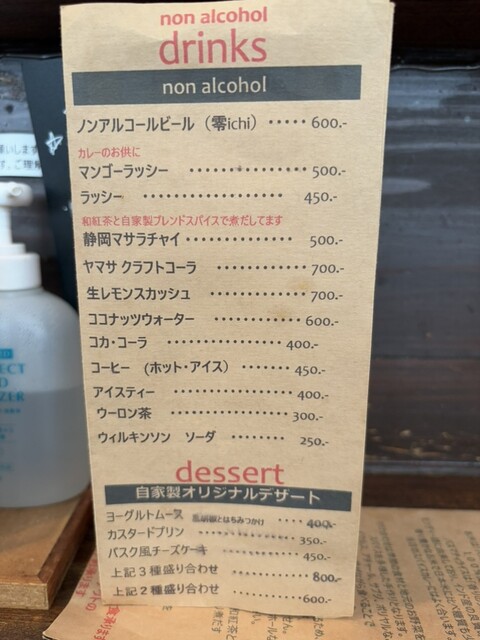 non alcohol
drinks
non alcohol
ノンアルコールビール（零ichi）・・・・・600.-
カレーのお供に
マンゴーラッシー ・・・・・・・・・・・・・・・500.-
ラッシー ・・・・・・・・・・・・・・ 450.-
和紅茶と自家製ブレンドスパイスで煮だしてます
静岡マサラチャイ・・・・・・・・・・・・・・ 500.-
ヤマサ クラフトコーラ ・・・・・・・・・・・・700.-
生レモンスカッシュ ・・・・・・・・・・・・700.-
ココナッツウォーター ・・・・・・・・・・・・600.-
コカ・コーラ ・・・・・・・・・・・・・・400.-
コーヒー （ホット・アイス）・・・・・・・450.-
アイスティー ・・・・・・・・・・・・・・400.-
ウーロン茶 ・・・・・・・・・・・・・・300.-
ウィルキンソン ソーダ ・・・・・・・・ 250.-
dessert
自家製オリジナルデザート
ヨーグルトムース とはちみつかけ ・・・・400.-
カスタードプリン ・・・・・・・・・・・350.-
バスク風チーズケーキ ・・・・・・・・・・450.-
上記３種盛り合わせ ・・・・・・・・・800.-
上記２種盛り合わせ ・・・・・・・・600.-